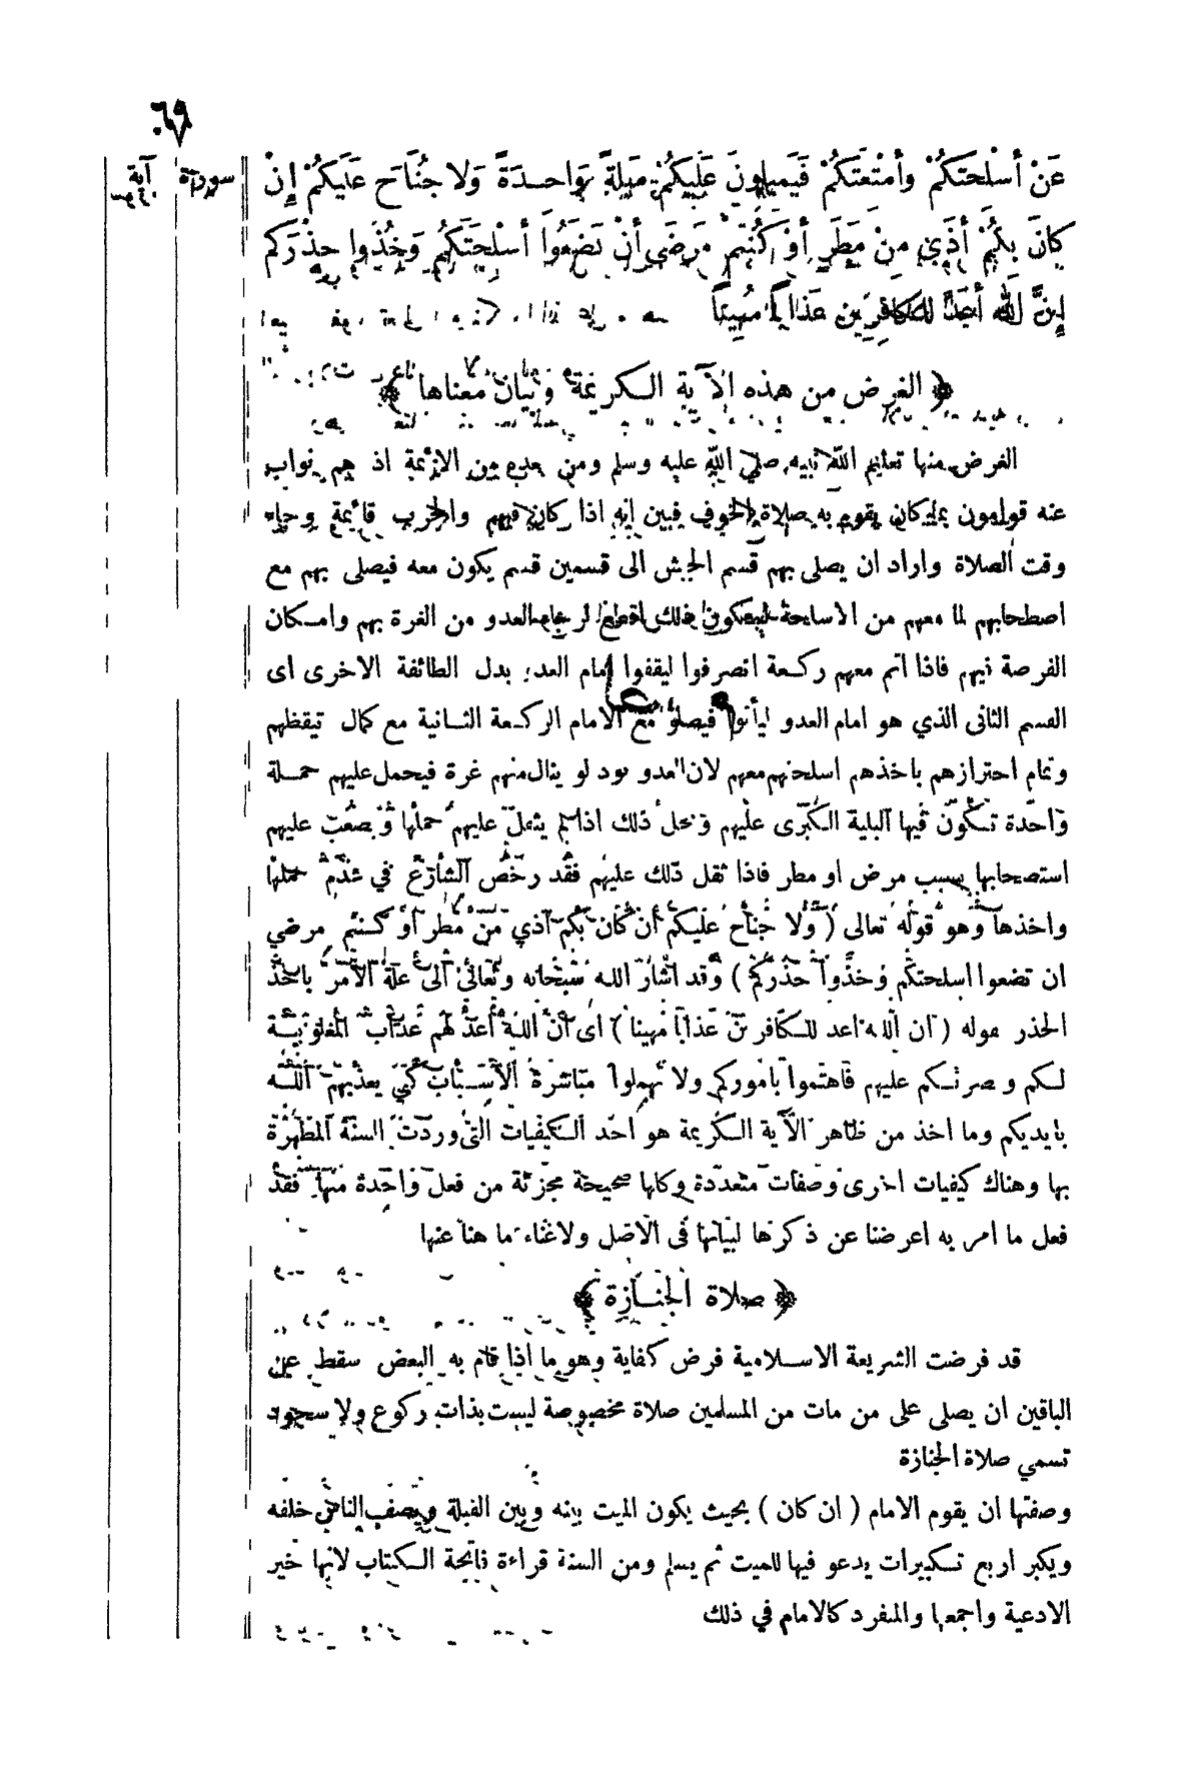 ٦٩
سورة آية
عَنْ أَسْلِحَتِكُمْ وأَمْتِعَتِكُمْ فَيَمِيلُونَ عَلَيكُمْ مَيلةً وَاحِدَةً وَلا جُنَاحَ عَلَيكُمْ إِنْ
كانَ بِكُمْ أَذًى مِنْ مَطَرٍ أَوْ كُنتم مَرضَى أَنْ تَضَعُوا أَسْلِحَتَكُم وَخُذُوا حِذْرَكم
إِنَّ الله أعَدَّ للكافِرِين عَذاباً مُهِيناً
﴿ الغرض من هذه الآية الكريمة وبيان معناها ﴾
الغرض منها تعليم الله نبيه صلى الله عليه وسلم ومن بعده من الائمة اذ هم نواب
عنه قوامون بما كان يقوم به صلاة الخوف فبين انه اذا كان فيهم والحرب قائمة وجاء
وقت الصلاة واراد ان يصلى بهم قسم الجيش الى قسمين قسم يكون معه فيصلى بهم مع
اصطحابهم لما معهم من الاسلحة ليكون ذلك اقطع لرجاء العدو من الغرة بهم وامكان
الفرصة فيهم فاذا اتم معهم ركعة انصرفوا ليقفوا امام العدو بدل الطائفة الاخرى اى
القسم الثانى الذي هو امام العدو ليأتوا فيصلوا مع الامام الركعة الثانية مع كمال تيقظهم
وتمام احترازهم باخذهم اسلحتهم معهم لان العدو يود لو ينال منهم غرة فيحمل عليهم حملة
واحدة تكون فيها البلية الكبرى عليهم ومحل ذلك اذا لم يثقل عليهم حملها ويصعب عليهم
استصحابها بسبب مرض او مطر فاذا ثقل ذلك عليهم فقد رخص الشارع في عدم حملها
واخذها وهو قوله تعالى ( ولا جناح عليكم أن كان بكم أذي من مطر أو كنتم مرضي
ان تضعوا اسلحتكم وخذوا حذركم ) وقد اشار الله سبحانه وتعالى الى علة الأمر باخذ
الحذر بقوله ( ان الله اعد للكافرين عذابا مهينا ) اى ان الله أعد لهم عذاب المغلوبية
لكم ونصرتكم عليهم فاهتموا باموركم ولا تهملوا مباشرة الأسباب كي يعذبهم الله
بايديكم وما اخذ من ظاهر الآية الكريمة هو احد الكيفيات التى وردت السنة المطهرة
بها وهناك كيفيات اخرى وصفات متعددة وكلها صحيحة مجزئة من فعل واحدة منها فقد
فعل ما امر به اعرضنا عن ذكرها لبيانها فى الاصل ولاغناء ما هنا عنها
﴿ صلاة الجنازة ﴾
قد فرضت الشريعة الاسلامية فرض كفاية وهو ما اذا قام به البعض سقط عن
الباقين ان يصلى على من مات من المسلمين صلاة مخصوصة ليست بذات ركوع ولا سجود
تسمي صلاة الجنازة
وصفتها ان يقوم الامام ( ان كان ) بحيث يكون الميت بينه وبين القبلة ويصف الناس خلفه
ويكبر اربع تكبيرات يدعو فيها للميت ثم يسلم ومن السنة قراءة فاتحة الكتاب لانها خير
الادعية واجمعها والمنفرد كالامام في ذلك